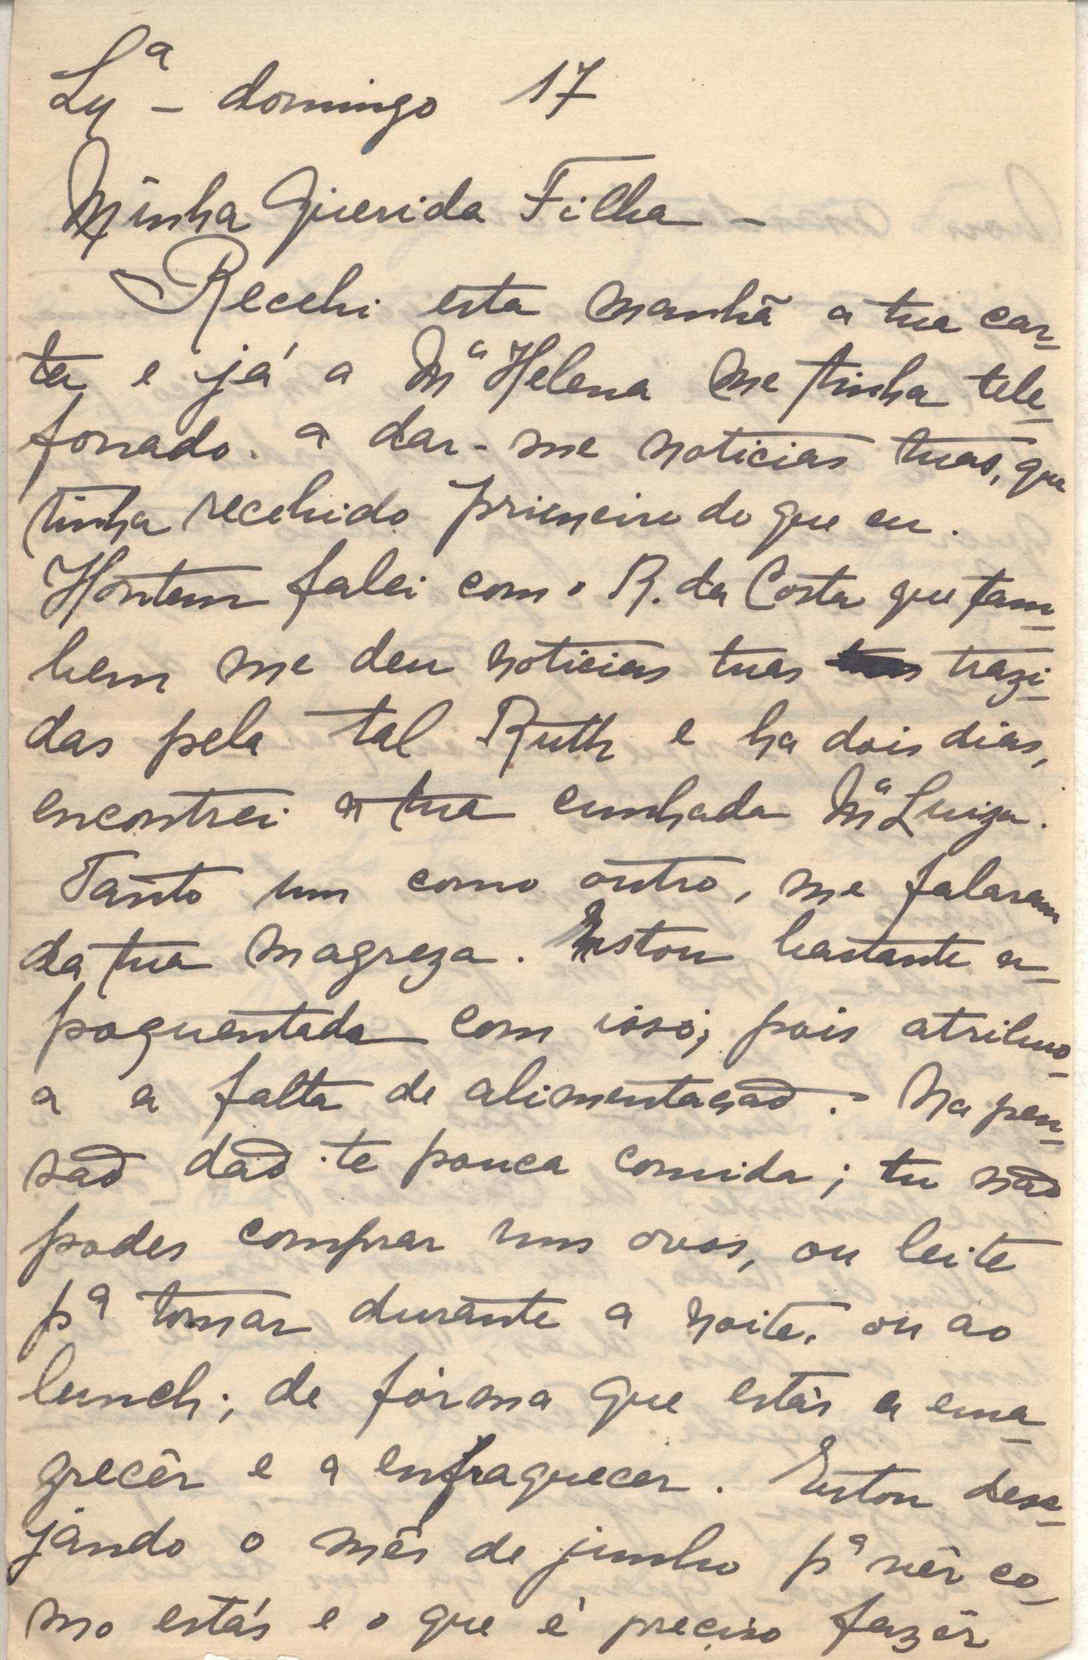 Lxª - domingo 17
Minha Querida Filha -
Recebi esta manhã a tua car-
ta e já a Mª Helena me tinha tele-
fonado. a dar-me noticias tuas, que
tinha recebido primeiro do que eu.
Hontem falei com o R. da Costa que tam-
bem me deu noticias tuas trazi-
das pela tal Ruth e ha dois dias,
encontrei a tua cunhada Mª Luiza.
Tanto um como outro, me falaram
da tua magreza. Estou bastante a-
poquentada com isso; pois atribuo-
a a falta de alimentação. - Na pen-
são dão-te pouca comida; tu não
podes comprar uns ovos, ou leite
pª tomar durante a noite, ou ao
lunch; de fórma que estás a ema-
grecêr e a enfraquecer. Estou dese-
jando o mês de junho pª vêr co-
mo estás e o que é preciso fazêr